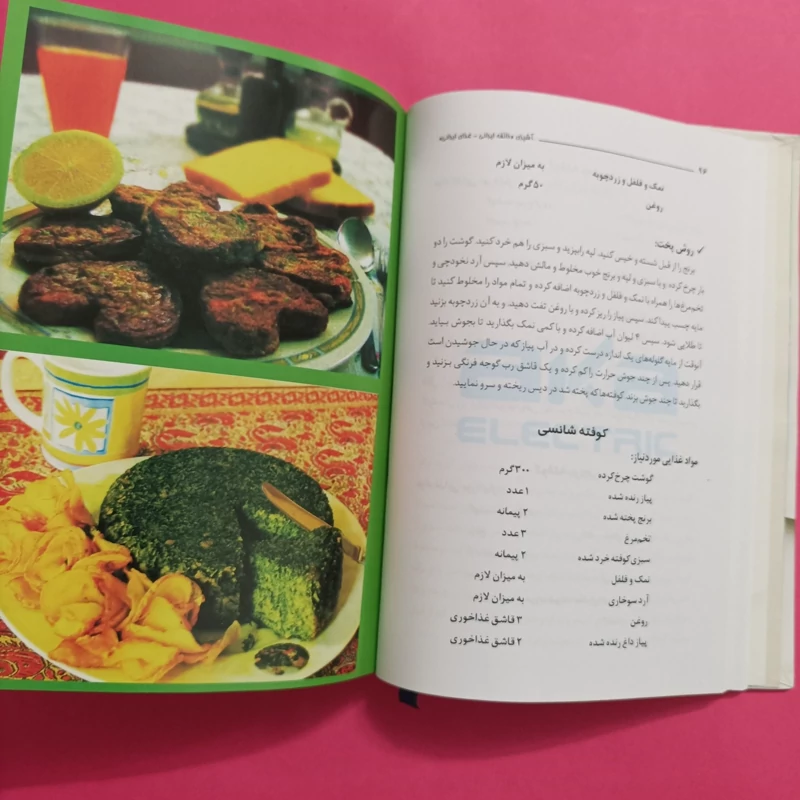 ۹۶
آشپزی با ذائقه ایرانی - غذای ایرانی
نمک و فلفل و زردچوبه به میزان لازم
روغن ۵۰ گرم
✓ روش پخت:
برنج را از قبل شسته و خیس کنید. لپه را بپزید و سبزی را هم خرد کنید. گوشت را دو
بار چرخ کرده و با سبزی و لپه و برنج خوب مخلوط و مالش دهید. سپس آرد نخودچی و
تخم‌مرغ‌ها را همراه با نمک و فلفل و زردچوبه اضافه کرده و تمام مواد را مخلوط کنید تا
مایه چسب پیدا کند. سپس پیاز را ریز کرده و با روغن تفت دهید. و به آن زردچوبه بزنید
تا طلایی شود. سپس ۴ لیوان آب اضافه کرده و با کمی نمک بگذارید تا بجوش بیاید.
آنوقت از مایه گلوله‌های یک اندازه درست کرده و در آب پیاز که در حال جوشیدن است
قرار دهید. پس از چند جوش حرارت را کم کرده و یک قاشق رب گوجه فرنگی بزنید و
بگذارید تا چند جوش بزند. کوفته‌ها که پخته شد در دیس ریخته و سرو نمایید.
ELECTRIC
کوفته شانسی
مواد غذایی موردنیاز:
گوشت چرخ کرده ۳۰۰ گرم
پیاز رنده شده ۱ عدد
برنج پخته شده ۲ پیمانه
تخم‌مرغ ۳ عدد
سبزی کوفته خرد شده ۲ پیمانه
نمک و فلفل به میزان لازم
آرد سوخاری به میزان لازم
روغن ۳ قاشق غذاخوری
پیاز داغ رنده شده ۲ قاشق غذاخوری